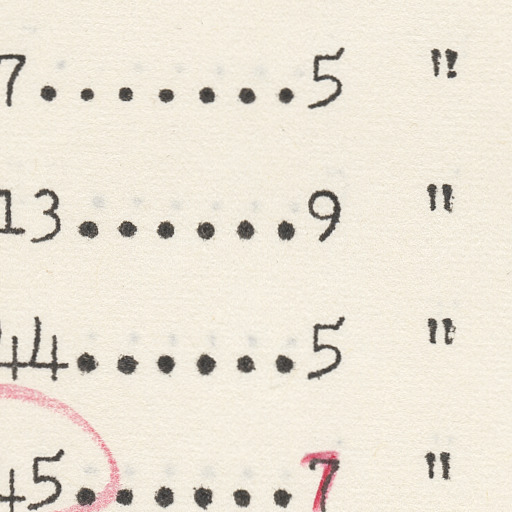 7.......5 "
13......9 "
44......5 "
45......7 "